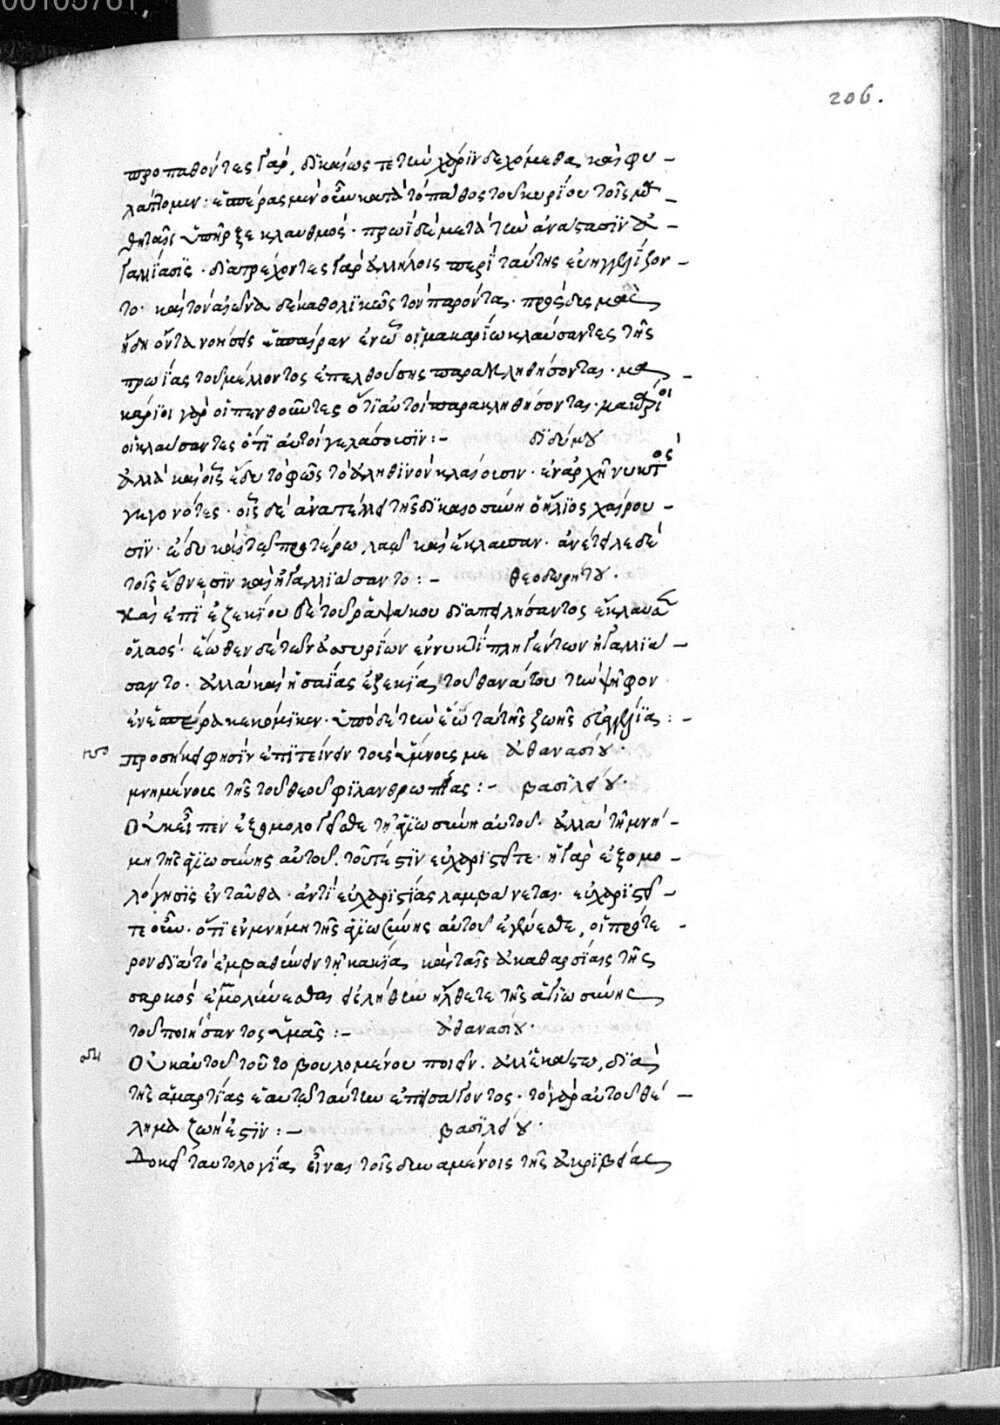 00105761,
206.
προπαθόντες γὰρ, δικαίως τε τὴν χάριν δεχόμεθα καὶ φυ-
λάττομεν· ἑσπέρας μὲν οὖν κατὰ τὸ πάθος τοῦ κυρίου τοῖς μα-
θηταῖς ὑπῆρξε κλαυθμός· πρωῒ δὲ μετὰ τὴν ἀνάστασιν ἀ-
γαλλίασις· διατρέχοντες γὰρ ἀλλήλοις περὶ ταύτης εὐηγγελίζον-
το· καὶ τὸν αἰῶνα δὲ καθολικῶς τὸν παρόντα
ἤδη ὄντα νοήσεις ἑσπέραν ἐν ᾧ οἱ μακαρίως κλαύσαντες τῆς
πρωΐας τοῦ μέλλοντος ἐπελθούσης παρακληθήσονται· μα-
κάριοι γὰρ οἱ πενθοῦντες ὅτι αὐτοὶ παρακληθήσονται· μακάριοι
οἱ κλαύσαντες ὅτι αὐτοὶ γελάσουσιν:- διδύμου
ἀλλὰ καὶ οἷς ἔδυ τὸ φῶς τὸ ἀληθινὸν κλαίουσιν· ἐν ἀρχῇ νυκτὸς
γεγονότες· οἷς δὲ ἀνατέλλει τῆς δικαιοσύνης ὁ ἥλιος χαίρου-
σιν· ἔδυ καὶ τῷ προτέρῳ λαῷ καὶ ἔκλαυσαν· ἀνέτειλε δὲ
τοῖς ἔθνεσιν καὶ ἠγαλλιάσαντο:- θεοδωρήτου·
Καὶ ἐπὶ ἐζεκίου δὲ τοῦ ῥαψάκου διαπειλήσαντος ἔκλαυσεν
ὁ λαός· ἕωθεν δὲ τῶν ἀσσυρίων ἐν νυκτὶ πληγέντων ἠγαλλιά-
σαντο· ἀλλὰ καὶ ἡσαΐας ἐζεκίᾳ τοῦ θανάτου τὴν ψῆφον
ἐν ἑσπέρᾳ κεκόμικεν· ὑπὸ δὲ τὴν ἕω τὰ τῆς ζωῆς εὐαγγέλια:-
προσήκει φησὶν ἐπιτείνειν τοὺς ὕμνους με ἀθανασίου·
μνημένους τῆς τοῦ θεοῦ φιλανθρωπίας:- βασιλείου·
Οὐκ εἶπεν ἐξομολογεῖσθε τῇ ἁγιωσύνῃ αὐτοῦ· ἀλλὰ τῇ μνή-
μῃ τῆς ἁγιωσύνης αὐτοῦ. τοῦτέστιν εὐχαριστεῖτε· ἡ γὰρ ἐξομο-
λόγησις ἐνταῦθα· ἀντὶ εὐχαριστίας λαμβάνεται· εὐχαριστεῖ-
τε οὖν· ὅτι ἐν μνήμῃ τῆς ἁγιωσύνης αὐτοῦ ἐγένεσθε, οἱ πρότε-
ρον διὰ τὸ ἐμβαθύνειν τῇ κακίᾳ καὶ ταῖς ἀκαθαρσίαις τῆς
σαρκὸς ἐμολύνεσθαι εἰς λήθην ἤλθετε τῆς ἁγιωσύνης
τοῦ ποιήσαντος ὑμᾶς:- ἀθανασίου·
Οὐκ αὐτοῦ τοῦτο βουλομένου ποιεῖν· ἀλλ' ἑκάστῳ, διὰ
τῆς ἁμαρτίας ἑαυτῷ ταύτην ἐπισπάσαντος· τὸ γὰρ αὐτοῦ θέ-
λημα ζωή ἐστιν:- βασιλείου·
Δοκεῖ ταυτολογία εἶναι τοῖς δυναμένοις τῆς ἀκριβείας